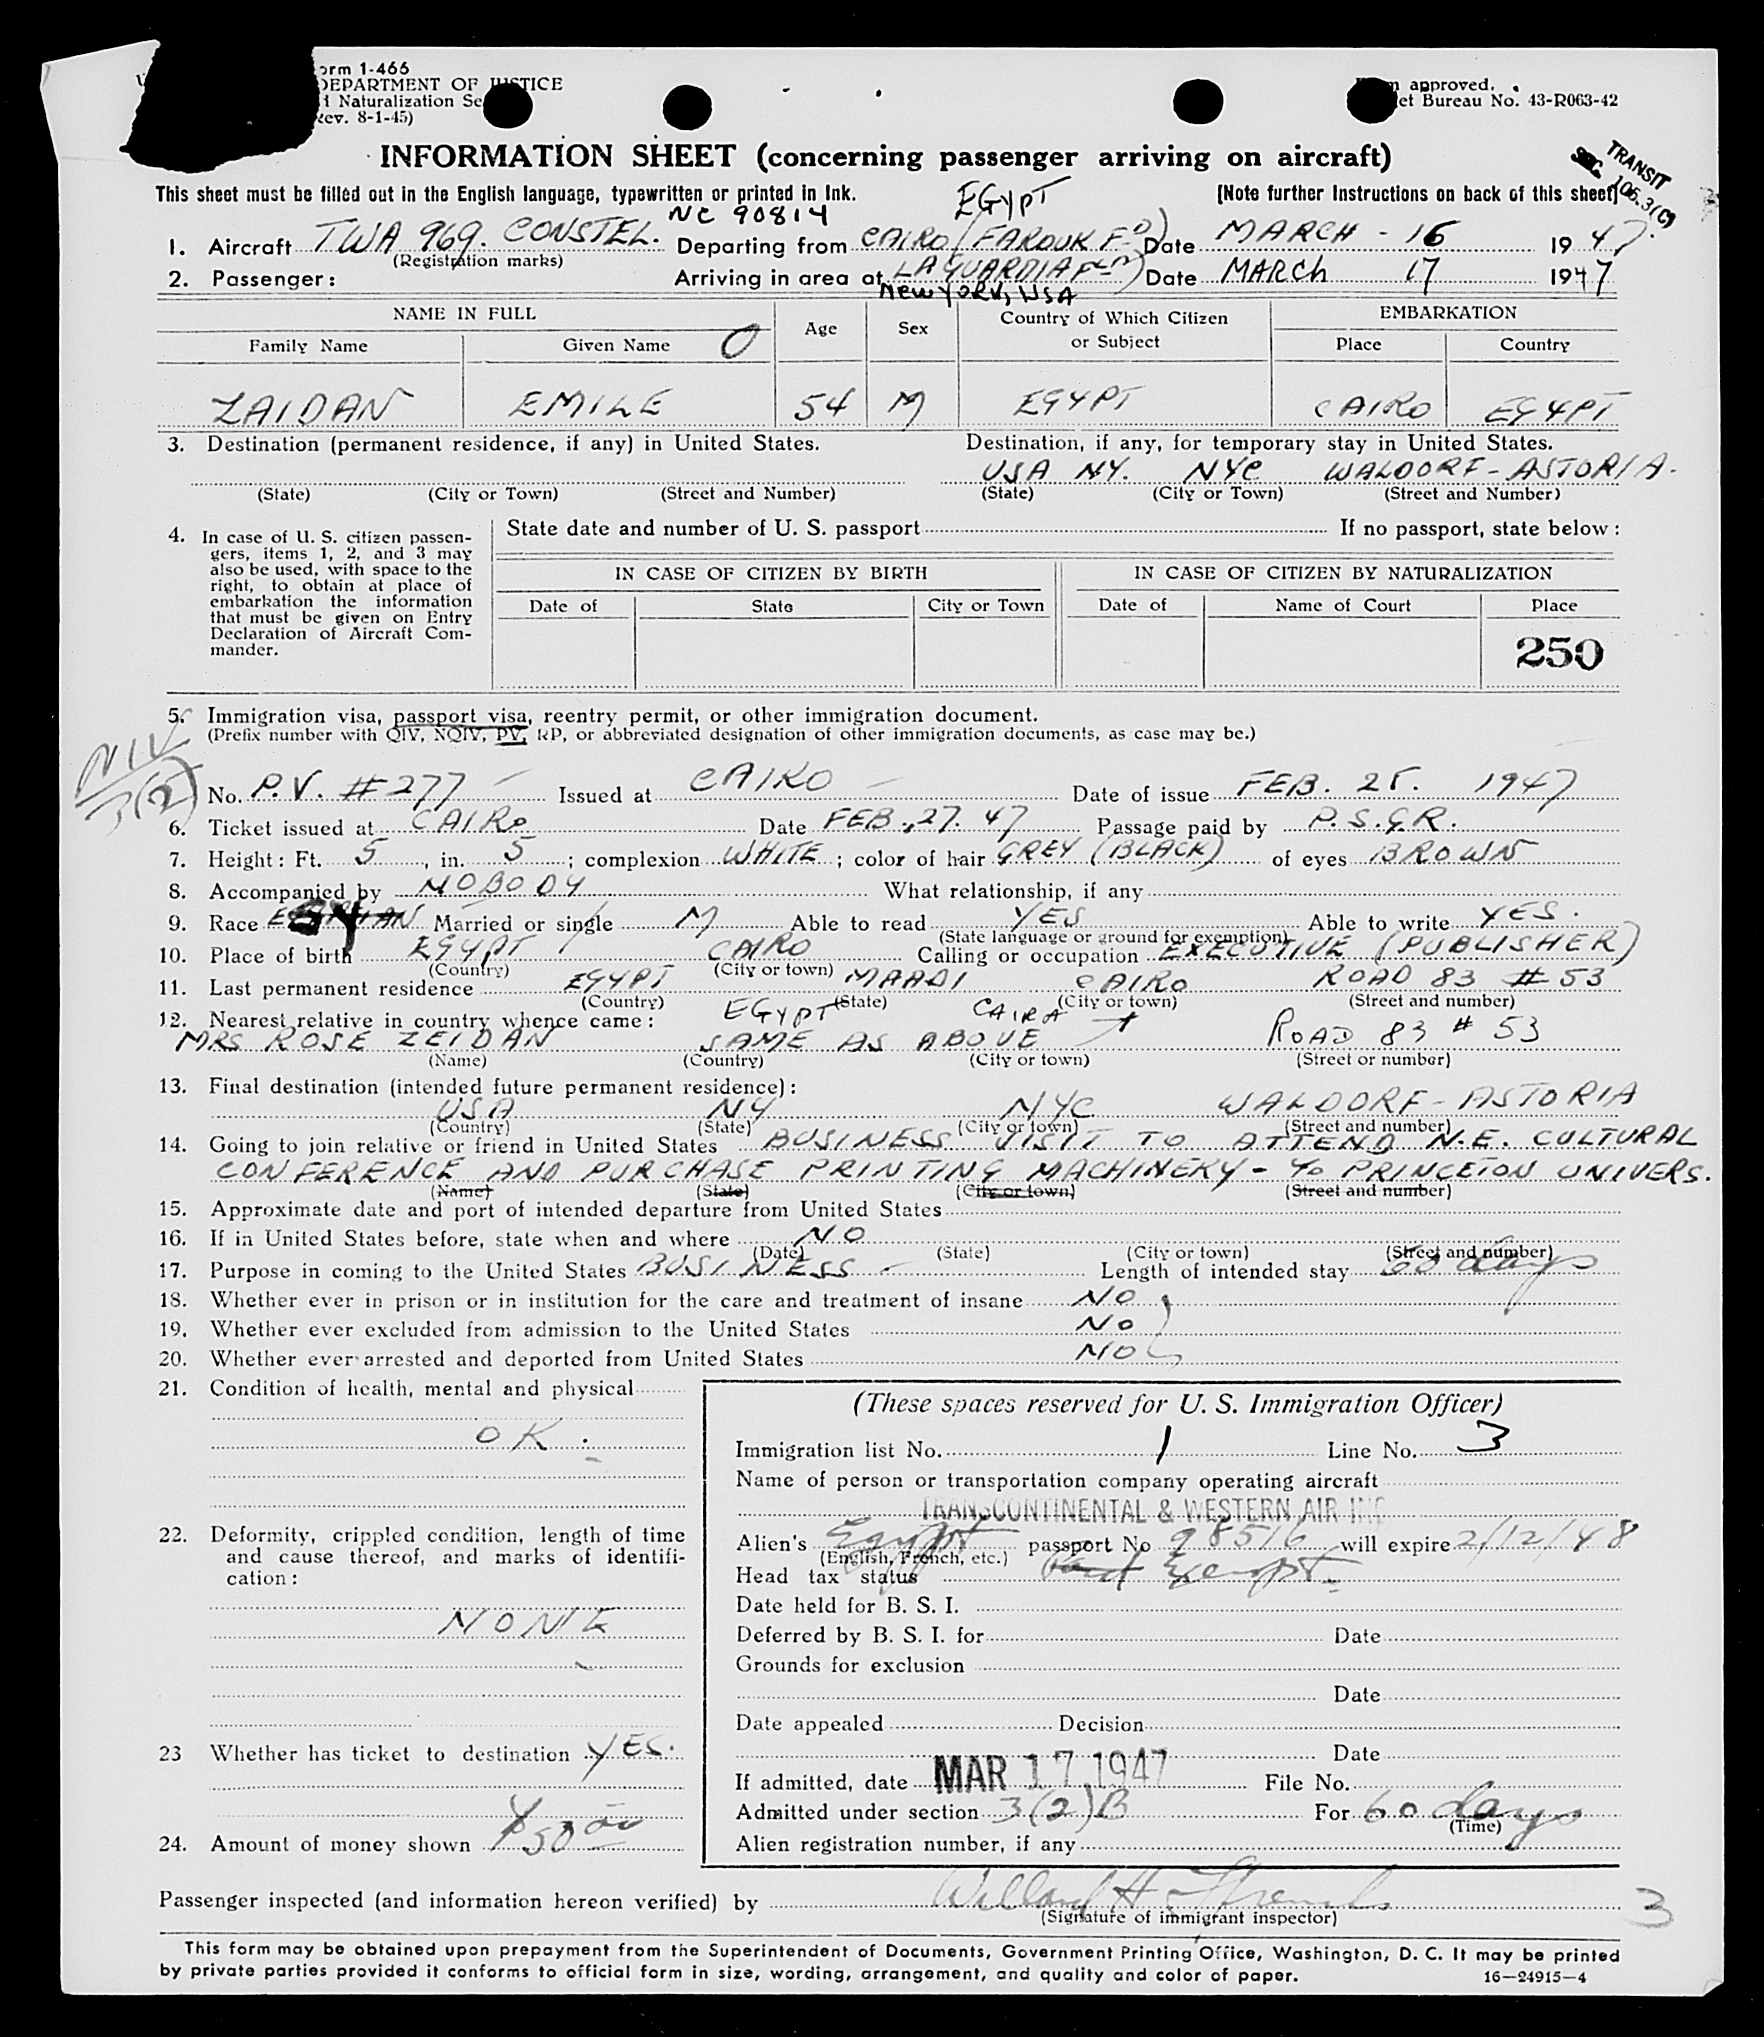 orm 1-466
DEPARTMENT OF JUSTICE
Naturalization Se
Rev. 8-1-45)
approved.
et Bureau No. 43-R063-42
INFORMATION SHEET (concerning passenger arriving on aircraft)
TRANSIT
SEC. 106.3(C)
This sheet must be filled out in the English language, typewritten or printed in Ink.
[Note further Instructions on back of this sheet]
NC 90814
EGYPT
1. Aircraft TWA 969. CONSTEL. Departing from CAIRO (FAROUK FD) Date MARCH - 16 1947.
(Registration marks)
2. Passenger: Arriving in area at LA GUARDIA FLD Date MARCH 17 1947
NEW YORK, USA
NAME IN FULL Age Sex Country of Which Citizen or Subject EMBARKATION
Family Name Given Name Place Country
ZAIDAN EMILE 54 M EGYPT CAIRO EGYPT
3. Destination (permanent residence, if any) in United States. Destination, if any, for temporary stay in United States.
USA NY. NYC WALDORF-ASTORIA.
(State) (City or Town) (Street and Number) (State) (City or Town) (Street and Number)
4. In case of U. S. citizen passen-
gers, items 1, 2, and 3 may
also be used, with space to the
right, to obtain at place of
embarkation the information
that must be given on Entry
Declaration of Aircraft Com-
mander.
State date and number of U. S. passport If no passport, state below:
IN CASE OF CITIZEN BY BIRTH IN CASE OF CITIZEN BY NATURALIZATION
Date of State City or Town Date of Name of Court Place
250
5. Immigration visa, passport visa, reentry permit, or other immigration document.
(Prefix number with QIV, NQIV, PV, RP, or abbreviated designation of other immigration documents, as case may be.)
NIV
3(2)
No. P.V. #277 Issued at CAIRO Date of issue FEB. 25. 1947
6. Ticket issued at CAIRO Date FEB. 27. 47 Passage paid by P.S.G.R.
7. Height: Ft. 5, in. 5; complexion WHITE; color of hair GREY (BLACK) of eyes BROWN
8. Accompanied by NOBODY What relationship, if any
9. Race Married or single M Able to read YES Able to write YES.
(State language or ground for exemption)
10. Place of birth EGYPT CAIRO Calling or occupation EXECUTIVE (PUBLISHER)
(Country) (City or town)
11. Last permanent residence EGYPT MAADI CAIRO ROAD 83 #53
(Country) (State) (City or town) (Street and number)
12. Nearest relative in country whence came: EGYPT CAIRA
MRS ROSE ZEIDAN SAME AS ABOVE ROAD 83 # 53
(Name) (Country) (City or town) (Street or number)
13. Final destination (intended future permanent residence):
USA NY NYC WALDORF-ASTORIA
(Country) (State) (City or town) (Street and number)
14. Going to join relative or friend in United States BUSINESS VISIT TO ATTEND N.E. CULTURAL
CONFERENCE AND PURCHASE PRINTING MACHINERY - % PRINCETON UNIVERS.
(Name) (State) (City or town) (Street and number)
15. Approximate date and port of intended departure from United States
16. If in United States before, state when and where NO
(Date) (State) (City or town) (Street and number)
17. Purpose in coming to the United States BUSINESS Length of intended stay 60 days
18. Whether ever in prison or in institution for the care and treatment of insane NO
19. Whether ever excluded from admission to the United States NO
20. Whether ever arrested and deported from United States NO
21. Condition of health, mental and physical
OK.
22. Deformity, crippled condition, length of time
and cause thereof, and marks of identifi-
cation:
NONE
23 Whether has ticket to destination YES.
24. Amount of money shown
(These spaces reserved for U. S. Immigration Officer)
Immigration list No. 1 Line No. 3
Name of person or transportation company operating aircraft
TRANSCONTINENTAL & WESTERN AIR INC
Alien's Egypt passport No 98516 will expire 2/12/48
(English, French, etc.)
Head tax status Exempt
Date held for B. S. I.
Deferred by B. S. I. for Date
Grounds for exclusion
Date
Date appealed Decision
Date
If admitted, date MAR 17 1947 File No.
Admitted under section 3(2)B For 60 days
(Time)
Alien registration number, if any
Passenger inspected (and information hereon verified) by Willard H
(Signature of immigrant inspector)
3
This form may be obtained upon prepayment from the Superintendent of Documents, Government Printing Office, Washington, D. C. It may be printed
by private parties provided it conforms to official form in size, wording, arrangement, and quality and color of paper. 16—24915—4